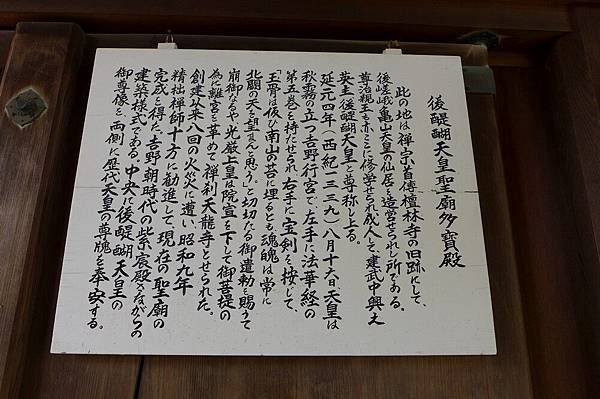 後醍醐天皇聖廟多寶殿
此の地は禅宗首傳檀林寺の旧跡にして、
後嵯峨、亀山天皇の仙居を造営せられし所である。
尊治親王も亦ここに修学せられ成人して建武中興の
英主後醍醐天皇と尊称し上る。
延元四年（西紀一三三九）八月十六日、天皇は
秋霧の立つ吉野行宮で、左手に法華経の
第五巻を持たせられ、右手に宝剣を按じて、
「玉骨は仮ひ南山の苔に埋るとも魂魄は常に
北闕の天を望まんと思う」と切切たる御遺勅を賜うて
崩御なるや光厳上皇は院宣を下して御菩提の
為に離宮を革めて禅刹天龍寺とせられた。
創建以来八回の火災に遭い、昭和九年
精拙禅師十方に勧進して、現在の聖廟の
完成を得た。吉野朝時代の紫宸殿さながらの
建築様式である。中央に後醍醐天皇の
御尊像を、両側に歴代天皇の尊牌を奉安する。